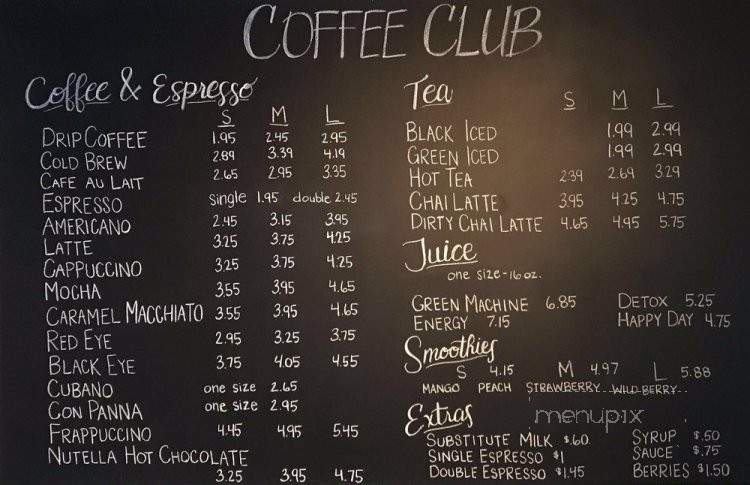 COFFEE CLUB
Coffee & Espresso
S M L
DRIP COFFEE 1.95 2.45 2.95
COLD BREW 2.89 3.39 4.19
CAFE AU LAIT 2.65 2.95 3.35
ESPRESSO single 1.95 double 2.45
AMERICANO 2.45 3.15 3.95
LATTE 3.25 3.75 4.25
CAPPUCCINO 3.25 3.75 4.25
MOCHA 3.55 3.95 4.65
CARAMEL MACCHIATO 3.55 3.95 4.65
RED EYE 2.95 3.25 3.75
BLACK EYE 3.75 4.05 4.55
CUBANO one size 2.65
CON PANNA one size 2.95
FRAPPUCCINO 4.45 4.95 5.45
NUTELLA HOT CHOCOLATE
3.25 3.95 4.75
Tea S M L
BLACK ICED 1.99 2.99
GREEN ICED 1.99 2.99
HOT TEA 2.39 2.69 3.29
CHAI LATTE 3.95 4.25 4.75
DIRTY CHAI LATTE 4.65 4.95 5.75
Juice
one size - 16 oz.
GREEN MACHINE 6.85 DETOX 5.25
ENERGY 7.15 HAPPY DAY 4.75
Smoothies
S 4.15 M 4.97 L 5.88
MANGO PEACH STRAWBERRY WILD BERRY
Extras
menupix
SUBSTITUTE MILK $.60 SYRUP $.50
SINGLE ESPRESSO $1 SAUCE $.75
DOUBLE ESPRESSO $1.45 BERRIES $1.50